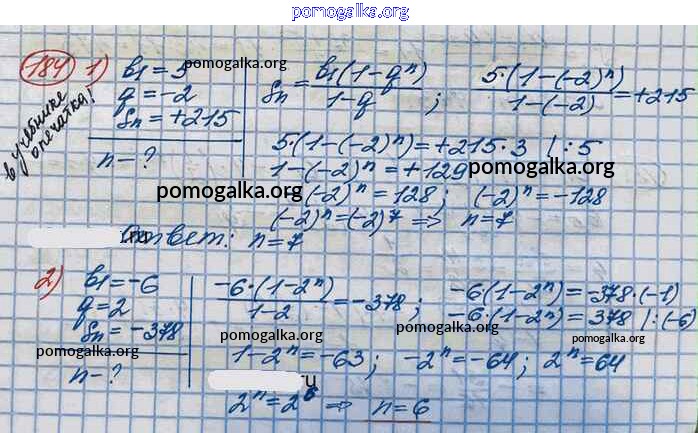 pomogalka.org
184 1) b1 = 5
q = -2
Sn = +215
n - ?
в учебнике опечатка!
pomogalka.org
Sn = b1(1-q^n) / 1-q ; 5·(1-(-2)^n) / 1-(-2) = +215
pomogalka.org
5·(1-(-2)^n) = +215·3 | :5
1-(-2)^n = +129
pomogalka.org
pomogalka.org
-(-2)^n = 128; (-2)^n = -128
(-2)^n = (-2)^7 => n = 7
Ответ: n = 7
2) b1 = -6
q = 2
Sn = -378
pomogalka.org
n - ?
-6·(1-2^n) / 1-2 = -378 ; -6(1-2^n) = -378·(-1)
-6·(1-2^n) = 378 | :(-6)
pomogalka.org
pomogalka.org
pomogalka.org
1-2^n = -63; -2^n = -64; 2^n = 64
ru
2^n = 2^6 => n = 6